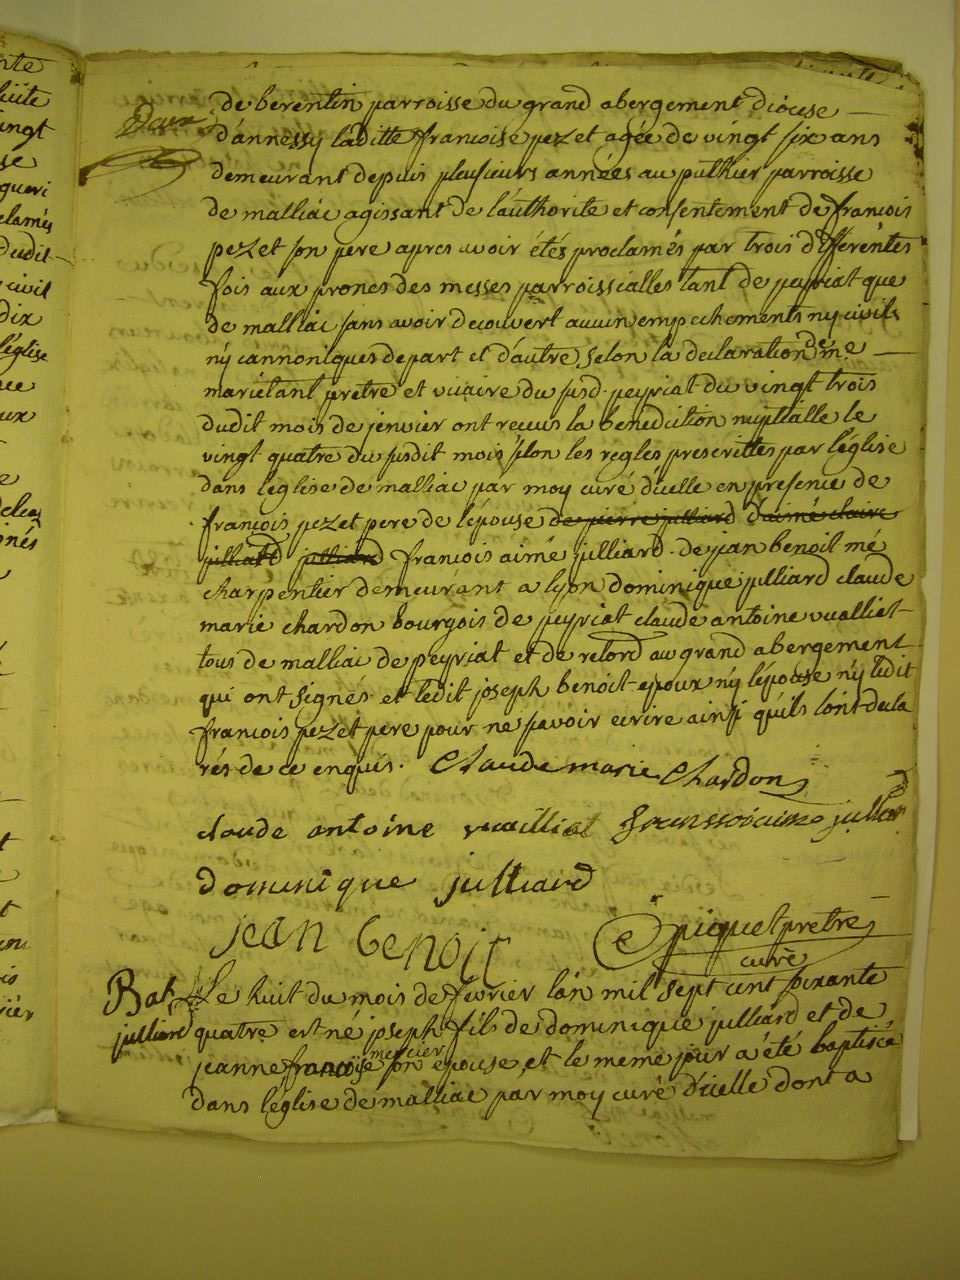 Deux
de berentin parroisse du grand abergement diocese
d'annessy laditte francoise pezet agée de vingt six ans
demeurant depuis plusieurs années au puthier parroisse
de malliac agissant de lauthorite et consentement de francois
pezet son pere apres avoir étés proclamés par trois differentes
fois aux prones des messes parroissialles tant de peyriat que
de malliac sans avoir decouvert aucun empechements ny civils
ny cannoniques de part et d'autre, selon la declaration de me
marietant pretre et vicaire du susd. peyriat du vingt trois
dudit mois de jenvier ont recus la benediction nuptialle le
vingt quatre du susdit mois selon les regles prescrittes par l'église
dans l'eglise de malliac par moy curé d'icelle en presence de
francois pezet pere de l'épouse de pierre julliard d'aimé claire
julliard julliard francois aimé julliard. de jean benoit me
charpentier demeurant a lyon dominique julliard claude
marie chardon bourgois de peyriat claude antoine vualliat
tous de malliac de peyriat et de retord au grand abergement
qui ont signés et ledit joseph benoit epoux ny lépouse ny ledit
francois pezet pere pour ne scavoir ecrire ainsi qu'ils l'ont decla
rés de ce enquis. Claude marie Chardon
claude antoine vuailliat julliar
dominique julliard
jean benoit piquet pretre
curé
Bat. Le huit du mois de fevrier l'an mil sept cent soixante
julliard quatre est né joseph fils de dominique julliard et de
mercier
jeanne francoise son epouse, et le meme jour a été baptisé
dans l'eglise de malliac par moy curé d'icelle dont a
nte
huite
ingt
se
queri
clamés
dudit
civil
dix
l'église